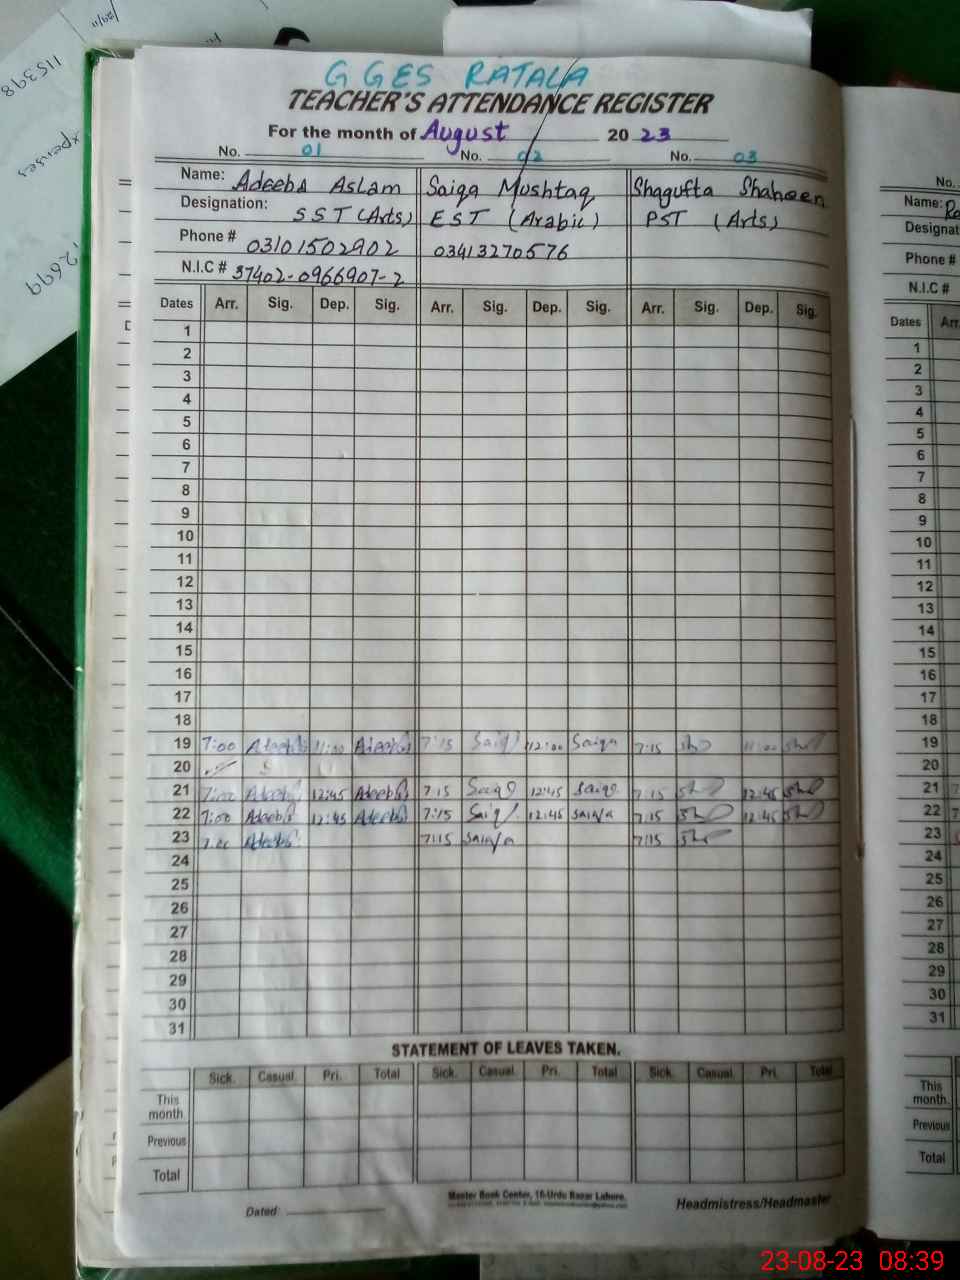 G GES RATALA
TEACHER'S ATTENDANCE REGISTER
For the month of August 2023
No. 01 No. 02 No. 03
Name: Adeeba Aslam Saiqa Mushtaq Shagufta Shaheen
Designation: SST (Arts) EST (Arabic) PST (Arts)
Phone # 03101502902 03413270576
N.I.C # 37402-0966907-2
Dates Arr. Sig. Dep. Sig. Arr. Sig. Dep. Sig. Arr. Sig. Dep. Sig.
1
2
3
4
5
6
7
8
9
10
11
12
13
14
15
16
17
18
19 7:00 Adeeba 11:00 Adeeba 7:15 Saiqa 12:00 Saiqa 7:15 11:00
20
21 7:00 Adeeba 12:45 Adeeba 7:15 Saiqa 12:45 Saiqa 7:15 12:45
22 7:00 Adeeba 12:45 Adeeba 7:15 Saiqa 12:45 Saiqa 7:15 12:45
23 7:00 Adeeba 7:15 Saiqa 7:15
24
25
26
27
28
29
30
31
STATEMENT OF LEAVES TAKEN.
Sick. Casual. Pri. Total Sick. Casual. Pri. Total Sick. Casual. Pri. Total
This month
Previous
Total
Master Book Center, 16-Urdu Bazar Lahore.
Dated Headmistress/Headmaster
No.
Name:
Designat
Phone #
N.I.C #
Dates Arr
1
2
3
4
5
6
7
8
9
10
11
12
13
14
15
16
17
18
19
20
21
22
23
24
25
26
27
28
29
30
31
This month.
Previous
Total
115398
expenses
12699
23-08-23 08:39